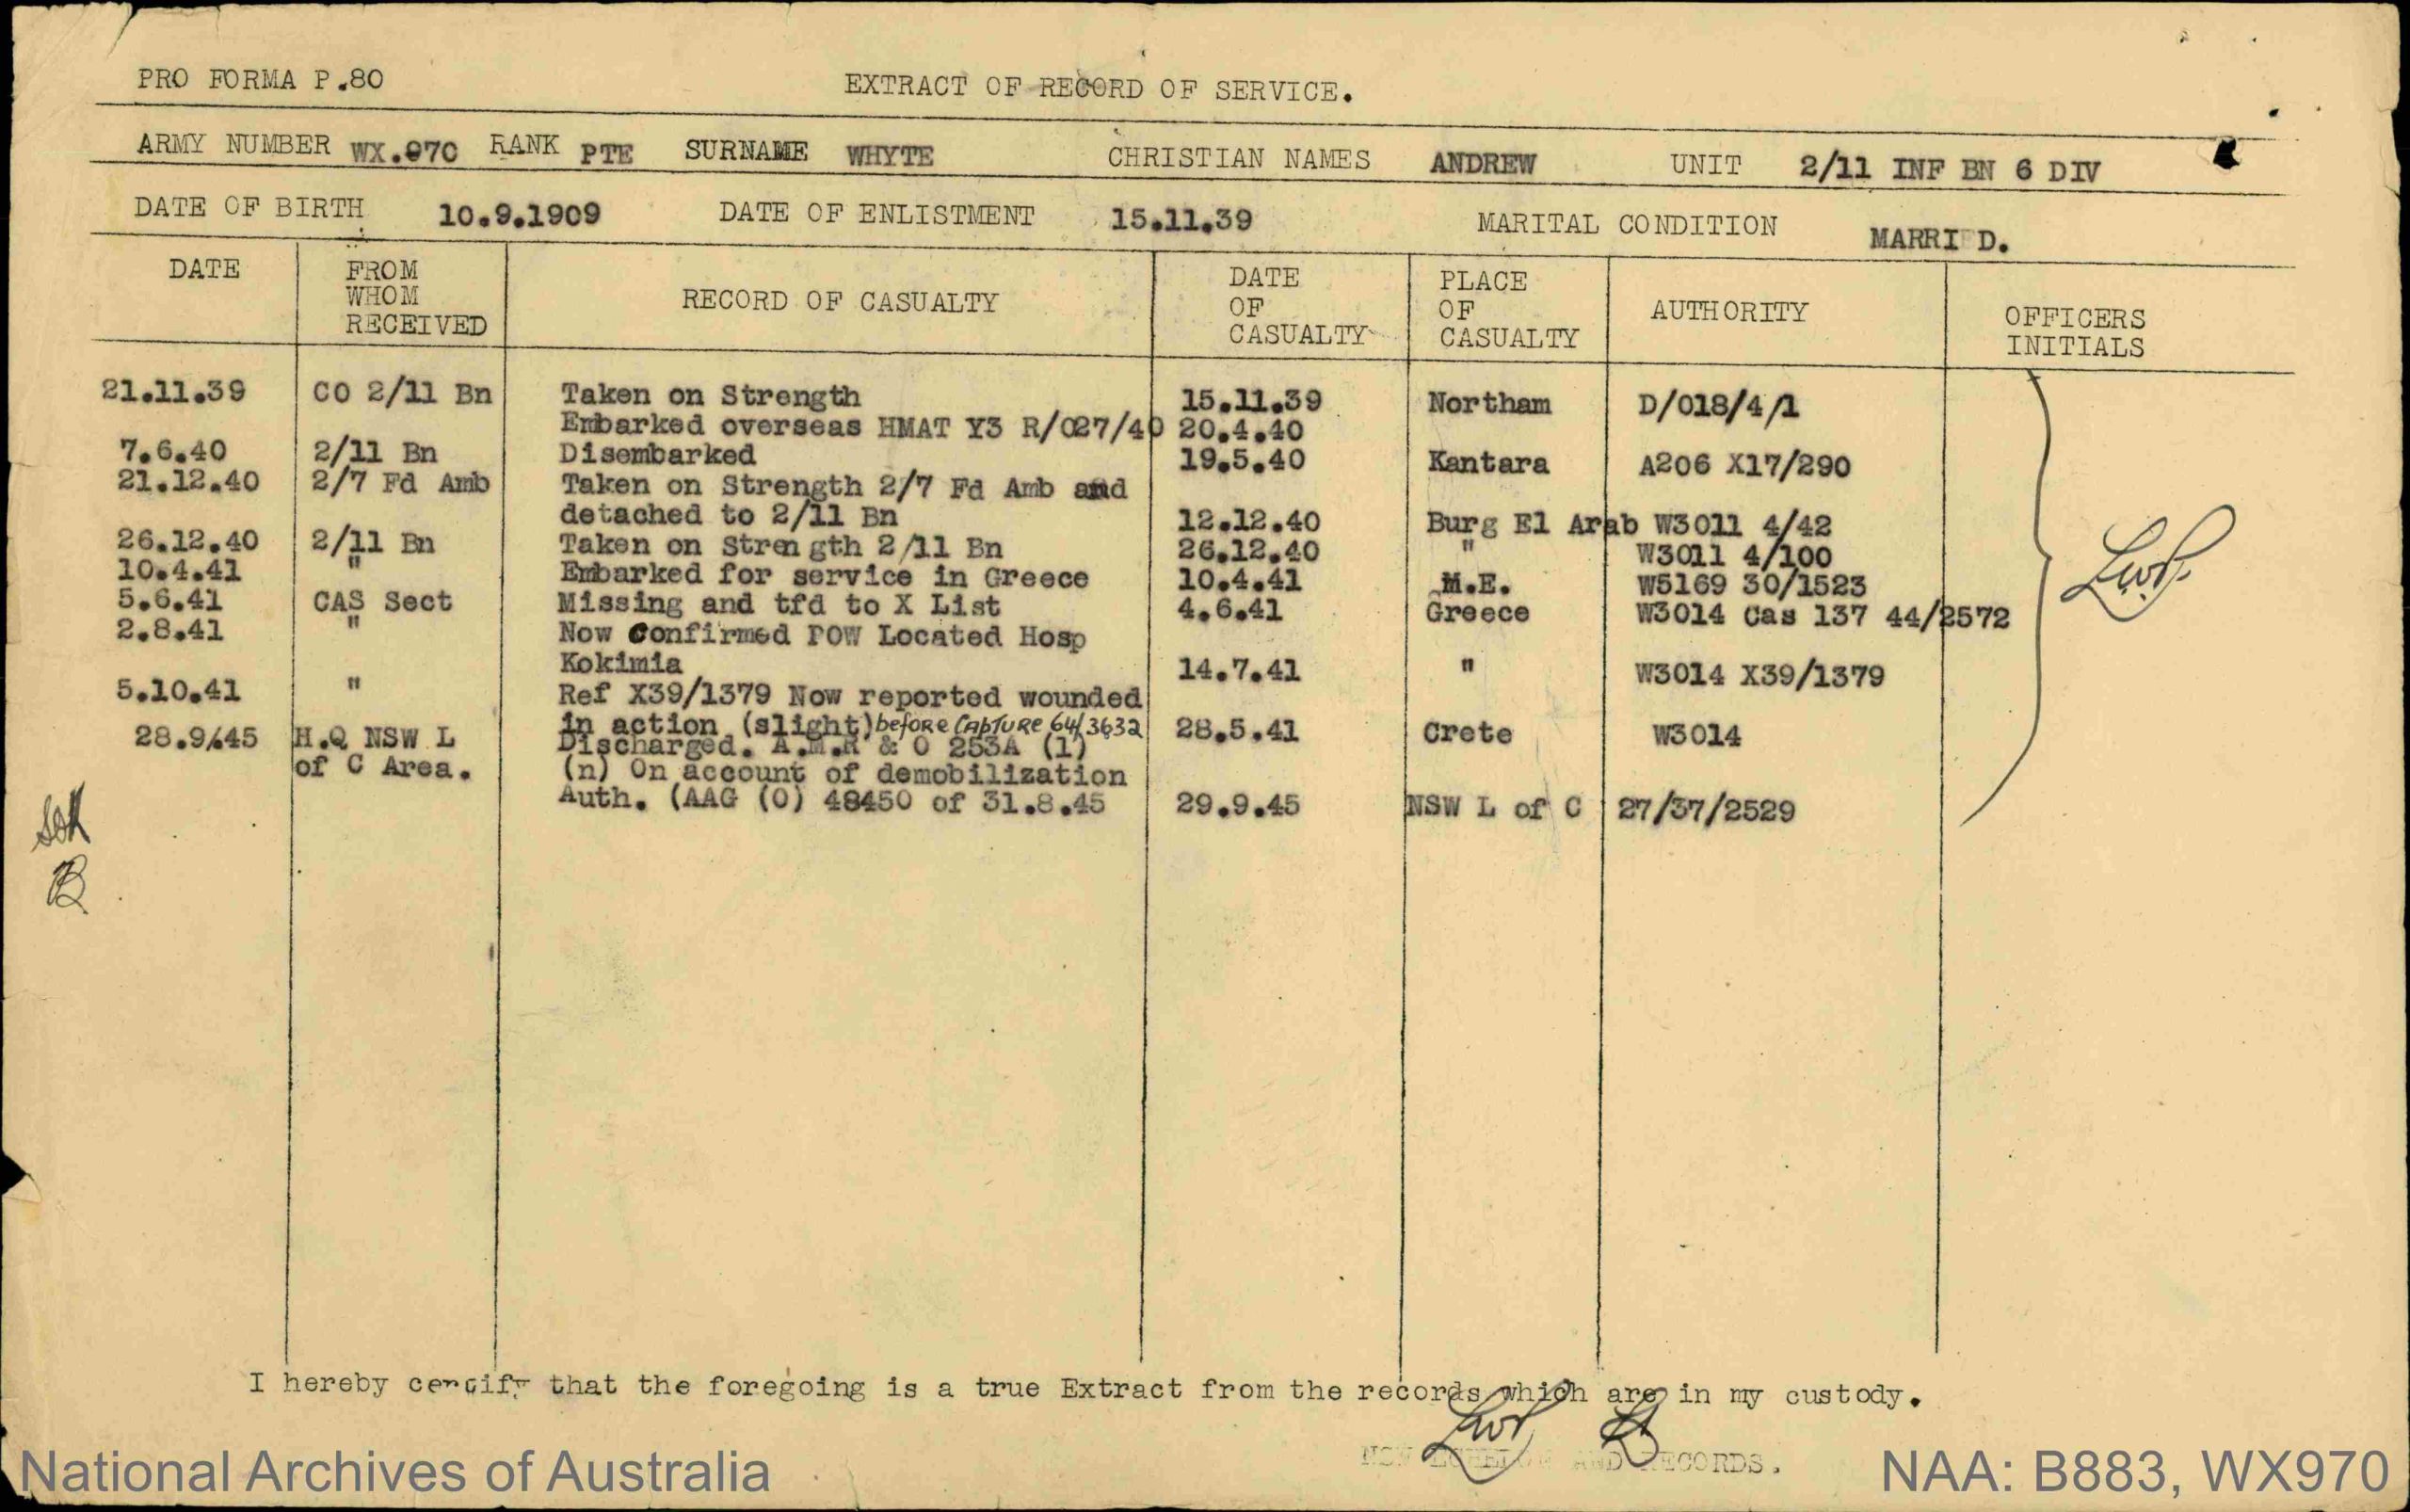 PRO FORMA P.80 EXTRACT OF RECORD OF SERVICE.
ARMY NUMBER WX.970 RANK PTE SURNAME WHYTE CHRISTIAN NAMES ANDREW UNIT 2/11 INF BN 6 DIV
DATE OF BIRTH 10.9.1909 DATE OF ENLISTMENT 15.11.39 MARITAL CONDITION MARRI D.
DATE FROM WHOM RECEIVED RECORD OF CASUALTY DATE OF CASUALTY PLACE OF CASUALTY AUTHORITY OFFICERS INITIALS
21.11.39 CO 2/11 Bn Taken on Strength 15.11.39 Northam D/018/4/1
Embarked overseas HMAT Y3 R/027/40 20.4.40
7.6.40 2/11 Bn Disembarked 19.5.40 Kantara A206 X17/290
21.12.40 2/7 Fd Amb Taken on Strength 2/7 Fd Amb and
detached to 2/11 Bn 12.12.40 Burg El Arab W3011 4/42
26.12.40 2/11 Bn Taken on Stren gth 2/11 Bn 26.12.40 " W3011 4/100
10.4.41 " Embarked for service in Greece 10.4.41 M.E. W5169 30/1523
5.6.41 CAS Sect Missing and tfd to X List 4.6.41 Greece W3014 Cas 137 44/2572
2.8.41 " Now confirmed POW Located Hosp
Kokimia 14.7.41 " W3014 X39/1379
5.10.41 " Ref X39/1379 Now reported wounded
in action (slight) before CAPTURE 64/3632 28.5.41 Crete W3014
28.9.45 H.Q NSW L Discharged. A.M.R & O 253A (1)
of C Area. (n) On account of demobilization
Auth. (AAG (O) 48450 of 31.8.45 29.9.45 NSW L of C 27/37/2529
I hereby certify that the foregoing is a true Extract from the records which are in my custody.
AND RECORDS.
National Archives of Australia NAA: B883, WX970